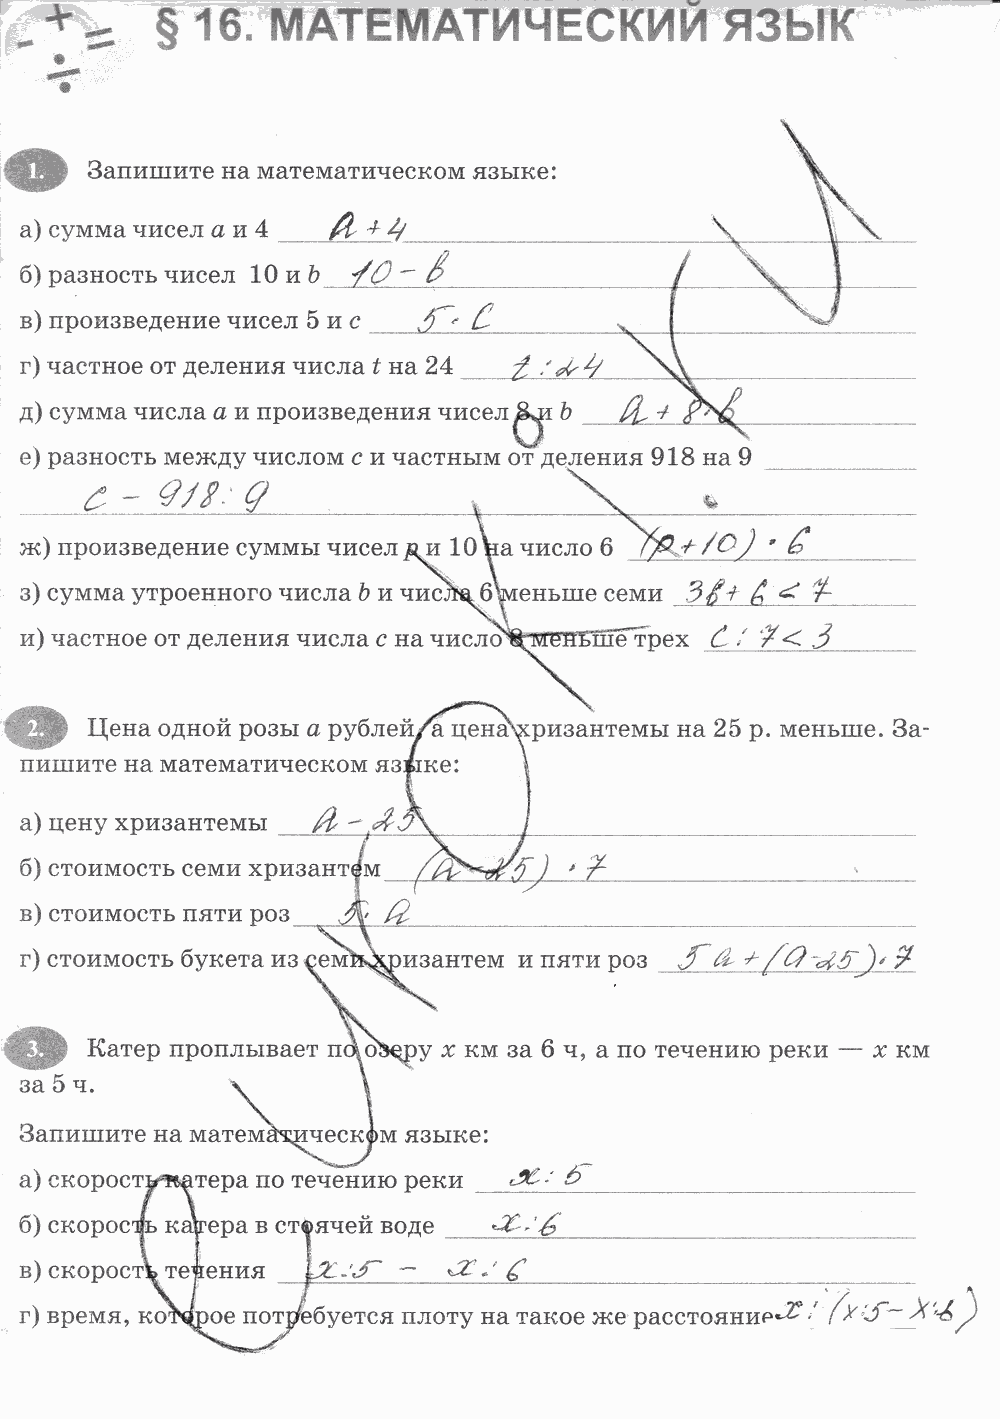 § 16. МАТЕМАТИЧЕСКИЙ ЯЗЫК
1. Запишите на математическом языке:
а) сумма чисел a и 4 a + 4
б) разность чисел 10 и b 10 - b
в) произведение чисел 5 и c 5 · c
г) частное от деления числа t на 24 t : 24
д) сумма числа a и произведения чисел 8 и b a + 8 · b
е) разность между числом c и частным от деления 918 на 9
c - 918 : 9
ж) произведение суммы чисел p и 10 на число 6 (p + 10) · 6
з) сумма утроенного числа b и числа 6 меньше семи 3b + 6 < 7
и) частное от деления числа c на число 8 меньше трех c : 7 < 3
2. Цена одной розы a рублей, а цена хризантемы на 25 р. меньше. За-
пишите на математическом языке:
а) цену хризантемы a - 25
б) стоимость семи хризантем (a - 25) · 7
в) стоимость пяти роз 5 · a
г) стоимость букета из семи хризантем и пяти роз 5a + (a - 25) · 7
3. Катер проплывает по озеру x км за 6 ч, а по течению реки — x км
за 5 ч.
Запишите на математическом языке:
а) скорость катера по течению реки x : 5
б) скорость катера в стоячей воде x : 6
в) скорость течения x : 5 - x : 6
г) время, которое потребуется плоту на такое же расстояние x : (x : 5 - x : 6)